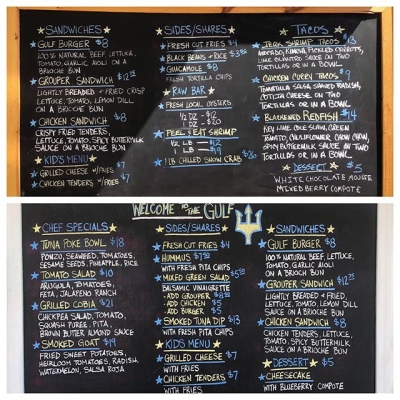 SANDWICHES
GULF BURGER $8
100% NATURAL BEEF, LETTUCE,
TOMATO, GARLIC AIOLI ON A
BRIOCHE BUN
GROUPER SANDWICH $12.25
LIGHTLY BREADED & FRIED CRISP
LETTUCE, TOMATO, LEMON DILL
ON A BRIOCHE BUN
CHICKEN SANDWICH $8
CRISPY FRIED TENDERS,
LETTUCE, TOMATO, SPICY BUTTERMILK
SAUCE ON A BRIOCHE BUN
KID'S MENU
GRILLED CHEESE W/FRIES $7
CHICKEN TENDERS W/FRIES $7
SIDES/SHARES
FRESH CUT FRIES $4
BLACK BEANS & RICE
GUACAMOLE $8
FRESH TORTILLA CHIPS
RAW BAR
FRESH LOCAL OYSTERS
1/2 DZ - $12
1 DZ - $20
PEEL & EAT SHRIMP
1/2 LB $12
1 LB
1 LB CHILLED SNOW CRAB
TACOS
JERK SHRIMP TACOS $13
AVOCADO, KIMCHI, PICKLED CARROTS,
LIME CILANTRO SAUCE ON TWO
TORTILLAS OR IN A BOWL
CHICKEN TACOS $9
TOMATILLO SALSA, SHAVED RADISH,
COTIJA CHEESE ON TWO
TORTILLAS OR IN A BOWL
BLACKENED REDFISH $14
KEY LIME COLE SLAW, GREEN
TOMATO, CAULIFLOWER CHOW CHOW,
SPICY BUTTERMILK SAUCE ON TWO
TORTILLAS OR IN A BOWL
DESSERT $5
WHITE CHOCOLATE MOUSSE
MIXED BERRY COMPOTE
WELCOME TO THE GULF
CHEF SPECIALS
TUNA POKE BOWL $18
PONZU, SEAWEED, TOMATOES,
SESAME SEEDS, PINEAPPLE, RICE
TOMATO SALAD $10
ARUGULA, TOMATOES,
FETA, JALAPENO RANCH
GRILLED COBIA $21
CHICKPEA SALAD, TOMATO,
SQUASH PUREE, PITA,
BROWN BUTTER ALMOND SAUCE
SMOKED GOAT $19
FRIED SWEET POTATOES,
HEIRLOOM TOMATOES, RADISH,
WATERMELON, SALSA ROJA
SIDES/SHARES
FRESH CUT FRIES $4
HUMMUS
WITH FRESH PITA CHIPS
MIXED GREEN SALAD
BALSAMIC VINAIGRETTE
- ADD GROUPER
- ADD CHICKEN $5
- ADD BURGER $5
SMOKED TUNA DIP $13
WITH FRESH PITA CHIPS
KID'S MENU
GRILLED CHEESE $7
WITH FRIES
CHICKEN TENDERS $7
WITH FRIES
SANDWICHES
GULF BURGER $8
100% NATURAL BEEF, LETTUCE,
TOMATO, GARLIC AIOLI
ON A BRIOCHE BUN
GROUPER SANDWICH $12.25
LIGHTLY BREADED & FRIED,
LETTUCE, TOMATO, LEMON DILL
SAUCE ON A BRIOCHE BUN
CHICKEN SANDWICH $8
CRISPY FRIED TENDERS, LETTUCE,
TOMATO, SPICY BUTTERMILK
SAUCE ON A BRIOCHE BUN
DESSERT $5
CHEESECAKE
WITH BLUEBERRY COMPOTE